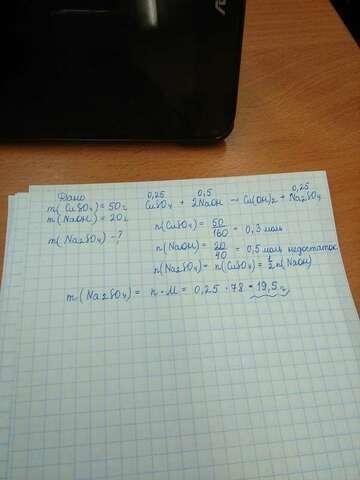 Дано
m(CuSO4) = 50г
m(NaOH) = 20г
m(Na2SO4) - ?
0,25 0,5 0,25
CuSO4 + 2NaOH → Cu(OH)2 + Na2SO4
n(CuSO4) = 50/160 = 0,3 моль
n(NaOH) = 20/40 = 0,5 моль недостаток
n(Na2SO4) = n(CuSO4) = 1/2 n(NaOH)
m(Na2SO4) = n · M = 0,25 · 78 = 19,5 г